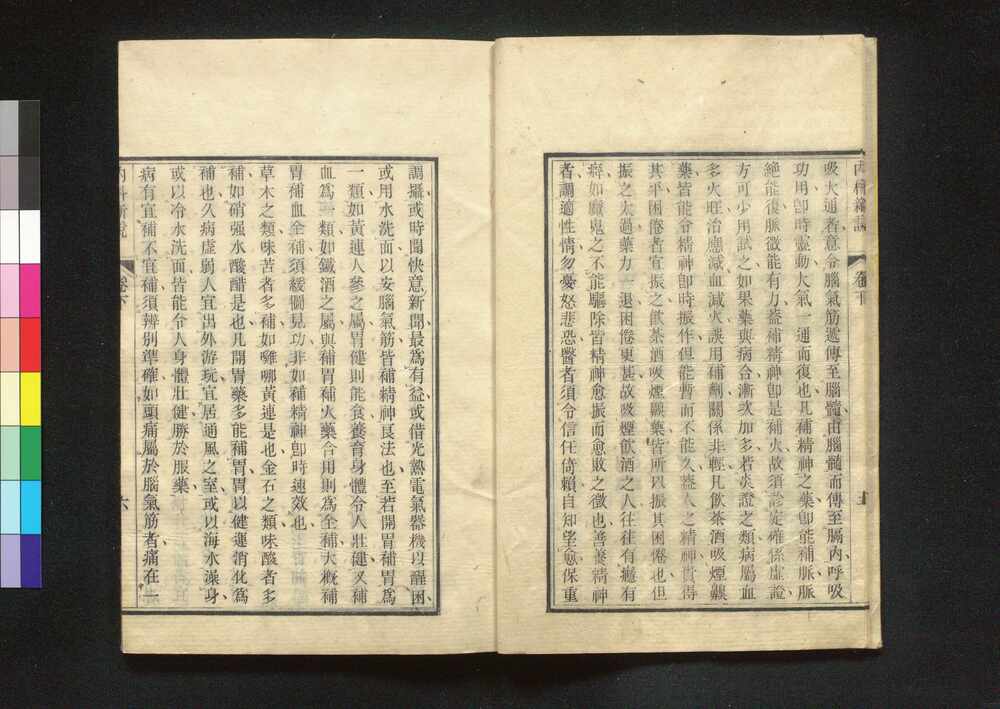 吸大通者意令腦氣筋遞傳至腦髓由腦髓而傳至膈内呼吸
功用卽時靈動大氣一通而復也凡補精神之藥卽能補脈脈
絶能復脈微能有力葢補精神卽是補火故須診定確係虛證
方可少用試之如果藥與病合漸次加多若炎證之類病屬血
多火旺治應減血減火誤用補劑關係非輕凡飲茶酒吸煙羅
藥皆能令精神卽時振作但能暫而不能久葢人之精神貴得
其平困倦者宜振之飲茶酒吸煙羅藥皆所以振其困倦也但
振之太過藥力一退困倦更甚故吸煙飲酒之人往往有癮有
癖如厲鬼之不能驅除皆精神愈振而愈敗之徵也善養精神
者調適性情勿憂怒悲恐醫者須令信任倚賴自知望愈保重
調攝或時聞快意新聞最爲有益或借光熱電氣器機以醒困
或用水洗面以安腦氣筋皆補精神良法也至若開胃補胃爲
一類如黃連人參之屬胃健則能食養育身體令人壯健又補
血爲一類如鐵酒之屬與補胃補火藥合用則爲全補大概補
胃補血全補須緩圖見功非如補精神卽時速效也
草木之類味苦者多補如囉哪黃連是也金石之類味酸者多
補如硝强水酸醋是也凡開胃藥多能補胃胃以健運消化爲
補也久病虛弱人宜出外游玩宜居通風之室或以海水澡身
或以冷水洗面皆能令人身體壯健勝於服藥
病有宜補不宜補須辨別準確如頭痛屬於腦氣筋者痛在一
内科新說
卷下
六